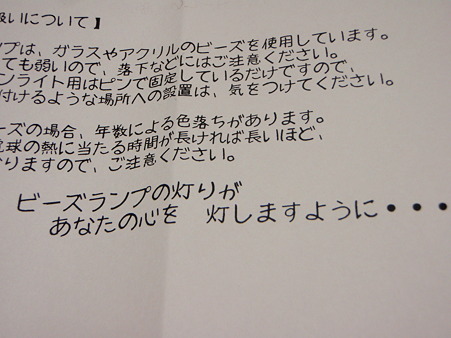 扱いについて】
ンプは、ガラスやアクリルのビーズを使用しています。
ても弱いので、落下などにはご注意ください。
ンライト用はピンで固定しているだけですので、
付けるような場所への設置は、気をつけてください。
ーズの場合、年数による色落ちがあります。
電球の熱に当たる時間が長ければ長いほど、
なりますので、ご注意ください。
ビーズランプの灯りが
あなたの心を 灯しますように・・・